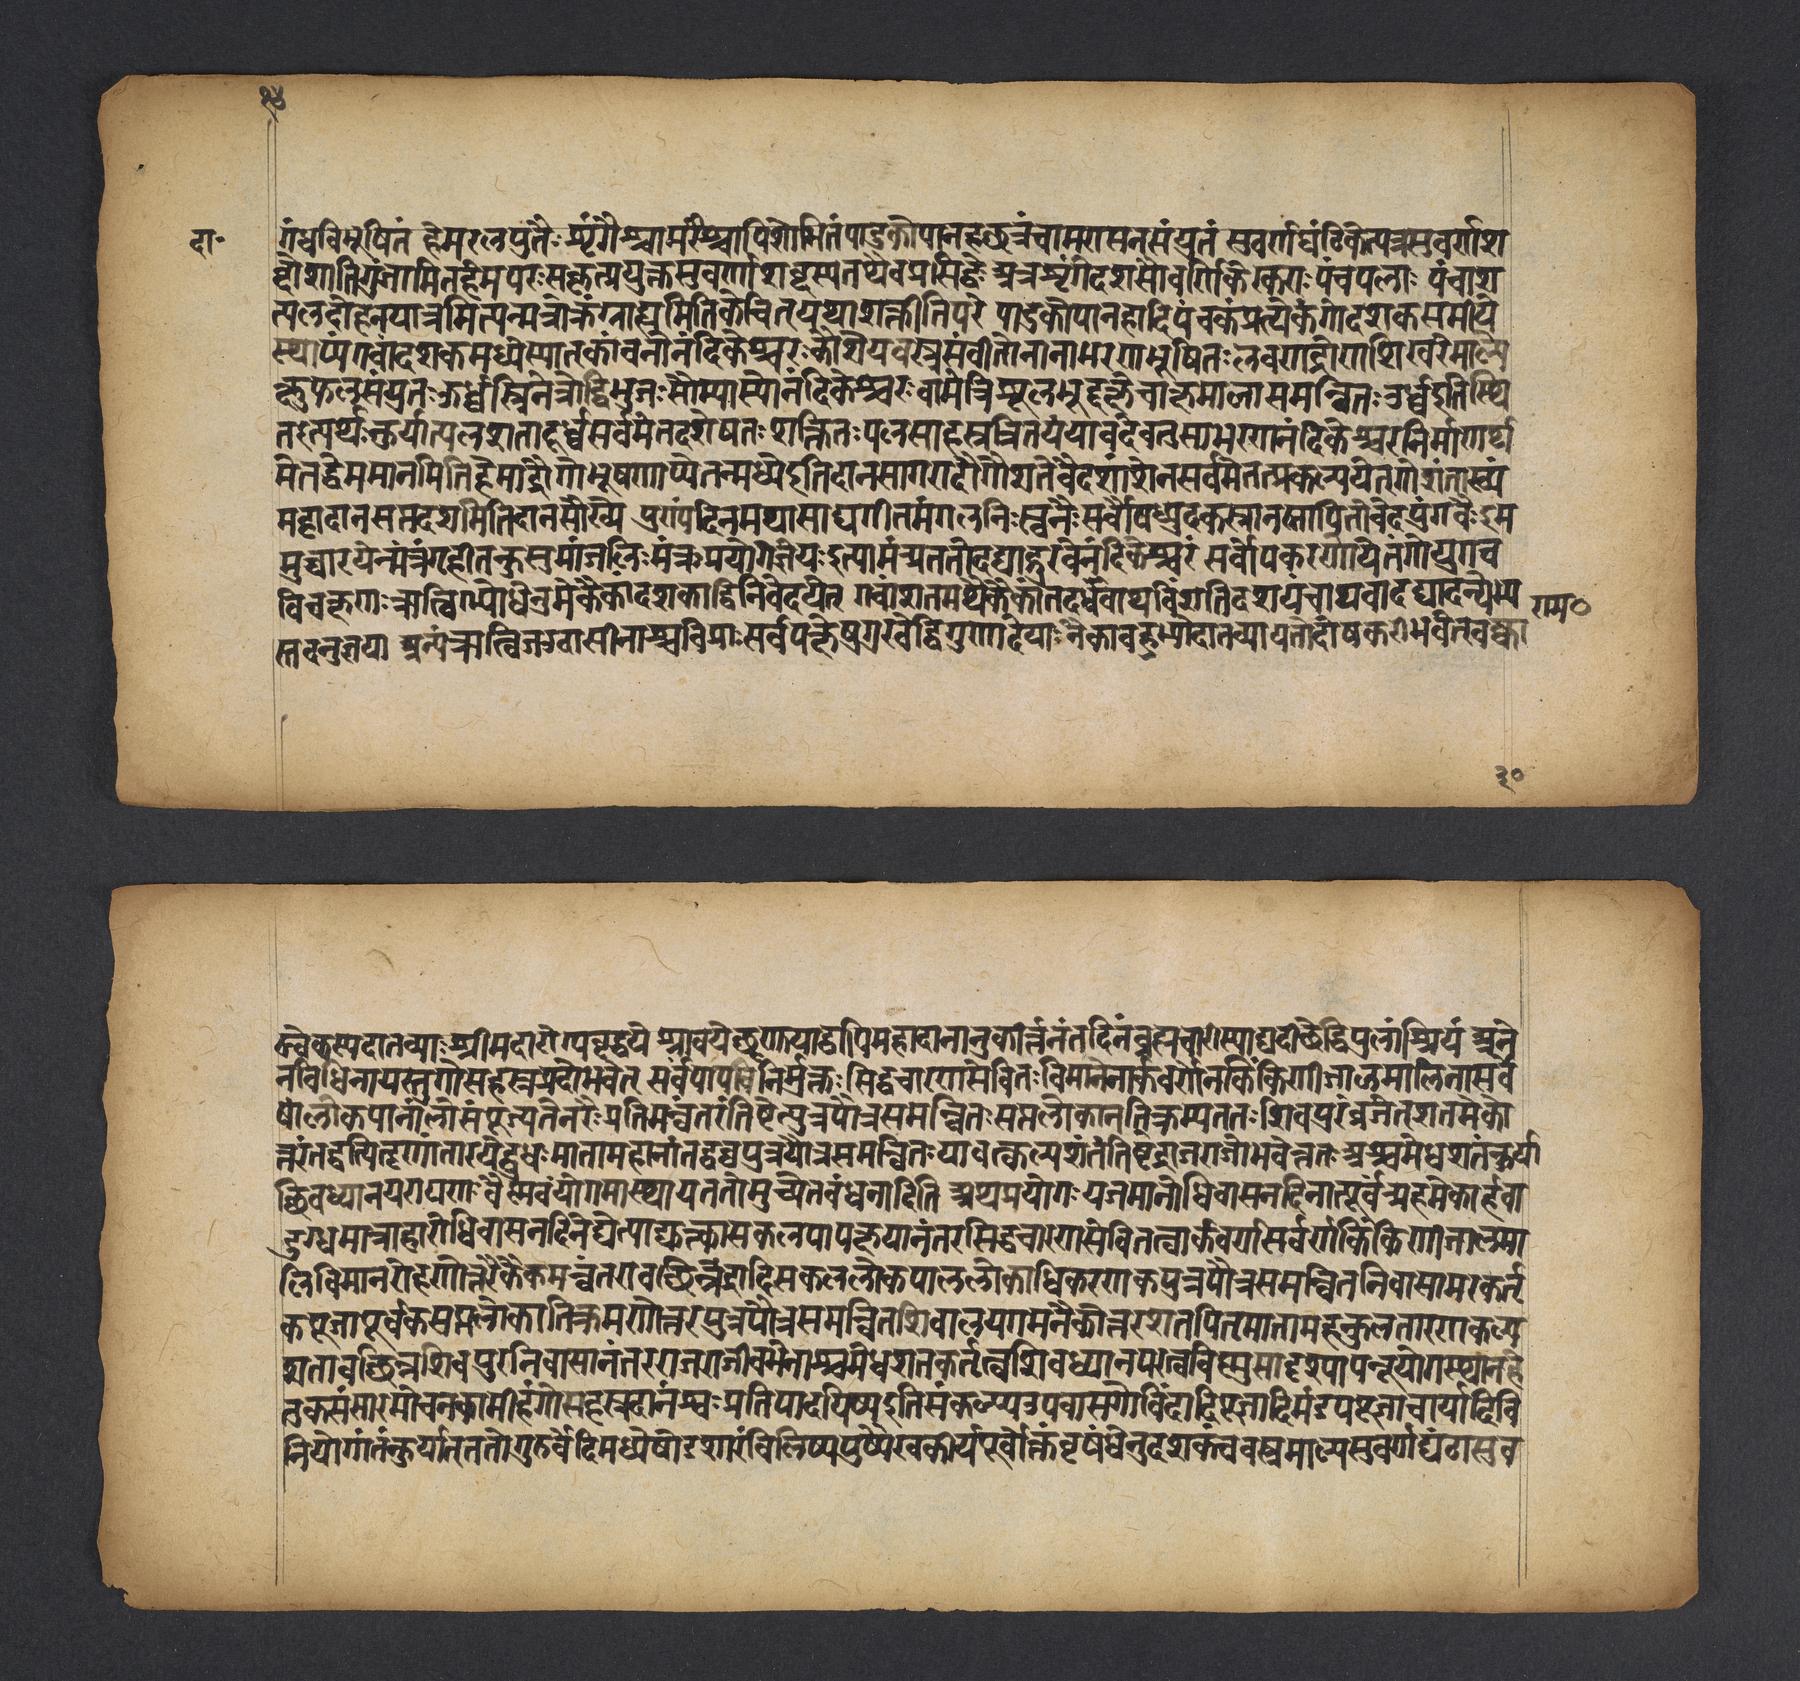 दा॰
गंधविभूषितं हेमरत्नयुतैः शृंगैश्चामरैश्चापिशोभितं पाडुकोपानहछत्रंचामरासनसंयुतं सुवर्णघंटिकेत्यत्रसुवर्णाश
ब्दोशीतिगुंजामितहेमपरः सकृत्प्रयुक्तसुवर्णशब्दस्यतथैवप्रसिद्धेः अत्रशृंगीदशसौवर्णिके खुराः पंचपलाः पंचाश
त्पलदोहनपात्रमित्यन्यत्रोक्तंग्राह्यमितिकेचित् यथाशक्तीतिपरे पाडुकोपानहादिपंचकंप्रत्येकंगोदशकसमीपे
स्थाप्यं गवांदशकमध्येस्यात्कांचनोनंदिकेश्वरः कौशेयवस्त्रसंवीतोनानाभरणभूषितः लवणद्रोणशिखरेमाल्ये
क्षुफलसंयुतः ऊर्ध्वस्त्रिनेत्रोद्विभुजः सौम्यास्योनंदिकेश्वरः वामेत्रिशूलभृद्दक्षेचाक्षमालासमन्वितः उर्ध्वइतिस्थि
तइत्यर्थः कुर्यात्पलशतादूर्ध्वंसर्वमेतदशेषतः शक्तितः पलसाहस्रत्रितयंयावदेवतुस्याभरणनंदिकेश्वरनिर्माणार्घ
मेतद्धेममानमितिहेमाद्रौ गोभूषणाप्येतन्मध्येइतिदानसागरादौ गोशतेवैदशांशेनसर्वमेतत्प्रकल्पयेत् गोशंतास्यं
महादानसप्तदशमितिदानसौख्ये पुरायंदिनमथासाद्यगीतमंगलनिःस्वनैः सर्वौषध्युदकस्नानस्नापितोवेदपुंगवैः इम
मुच्चारयेन्मंत्रंगृहीतकुसुमांजलिः मंत्रप्रयोगेज्ञेयः इत्यामंत्र्यततोदद्याद्गुरवेनंदिकेश्वरं सर्वोपकरणोपेतंगोयुगंच
विचक्षणः ऋत्विग्भ्योधेनुमेकैकांदशकाद्विनिवेदयेत् गवांशतमथैकैकांतदर्धंवाथविंशतिदशपंचाथवादद्यादन्येभ्य राम॰
स्तदनुज्ञया अन्यऋत्विजउपासीनाश्चविप्राः सर्वपक्षेषुगुरवेद्विगुणादेयाः नैकाबहुभ्योदातव्यायतोदोषकरीभवेत् बह्व्य
२०
श्चैकस्यदातव्याः श्रीमदारोग्यवृद्धये श्रावयेछृणुयाद्वापिमहादानानुकीर्त्तनंतद्दिनंब्रह्मचारीस्याद्यदीछेद्विपुलांश्रियं अने
नविधिनायस्तुगोसहस्रप्रदोभवेत् सर्वपापविनिर्मुक्तः सिद्धचारणसेवितः विमानेनार्कवर्णेनकिंकिणीजालमालिनासर्वे
षांलोकपानांलोसंपूज्यतेनरैः प्रतिमन्वंतरंतिष्ठेत्पुत्रपौत्रसमन्वितः सप्तलोकानतिक्रम्यततः शिवपुरंव्रजेत् शतमेको
त्तरंतद्वत्पितॄणांतारयेद्बुधः मातामहानांतद्वच्चपुत्रपौत्रसमन्वितः यावत्कल्पशतंतिष्ठेद्राजराजोभवेत्ततः अश्वमेधशतंकुर्या
छिवध्यानपरायणः वैष्णवंयोगमास्थायततोमुच्येतबंधनादिति अथप्रयोगः यजमानोधिवासनदिनात्पूर्वंत्र्यहमेकाहंवा
दुग्धमात्राहारोधिवासनदिनेद्येत्याद्युक्त्वासकलपापक्षयानंतरसिद्धचारणसेवितत्वार्कवर्णसवर्णकिंकिणीजालमा
लिविमानरोहणोत्तरैकैकमन्वंतरावच्छिन्नेंद्रादिसकललोकपाललोकाधिकरणकपुत्रपौत्रसमन्वितनिवासामरकर्तृ
कपूजापूर्वकसप्तलोकातिक्रमणोत्तरपुत्रपौत्रसमन्वितशिवालयगमनैकोत्तरशतपितृमातामहकुलतारणकल्प
शतावछिन्नशिवपुरनिवासानंतरराजराजीभवनाश्वमेधशतकर्तृत्वशिवध्यानपरत्वविष्णुसादृश्यापन्नयोगस्थानहे
तुकसंसारमोचनकामोहंगोसहस्रदानंश्वः प्रतिपादयिष्यइतिसंकल्प्यउपवासगोविंदादिपूजादिमंडपपूजाचार्यादिवि
नियोगांतंकुर्यात् ततोगुरुर्वेदिमध्येषोडशारंविलिख्यपुष्पैरवकीर्यपूर्वोक्तंवृषंधेनुदशकंचवस्त्रमाल्यसुवर्णघंटासुव